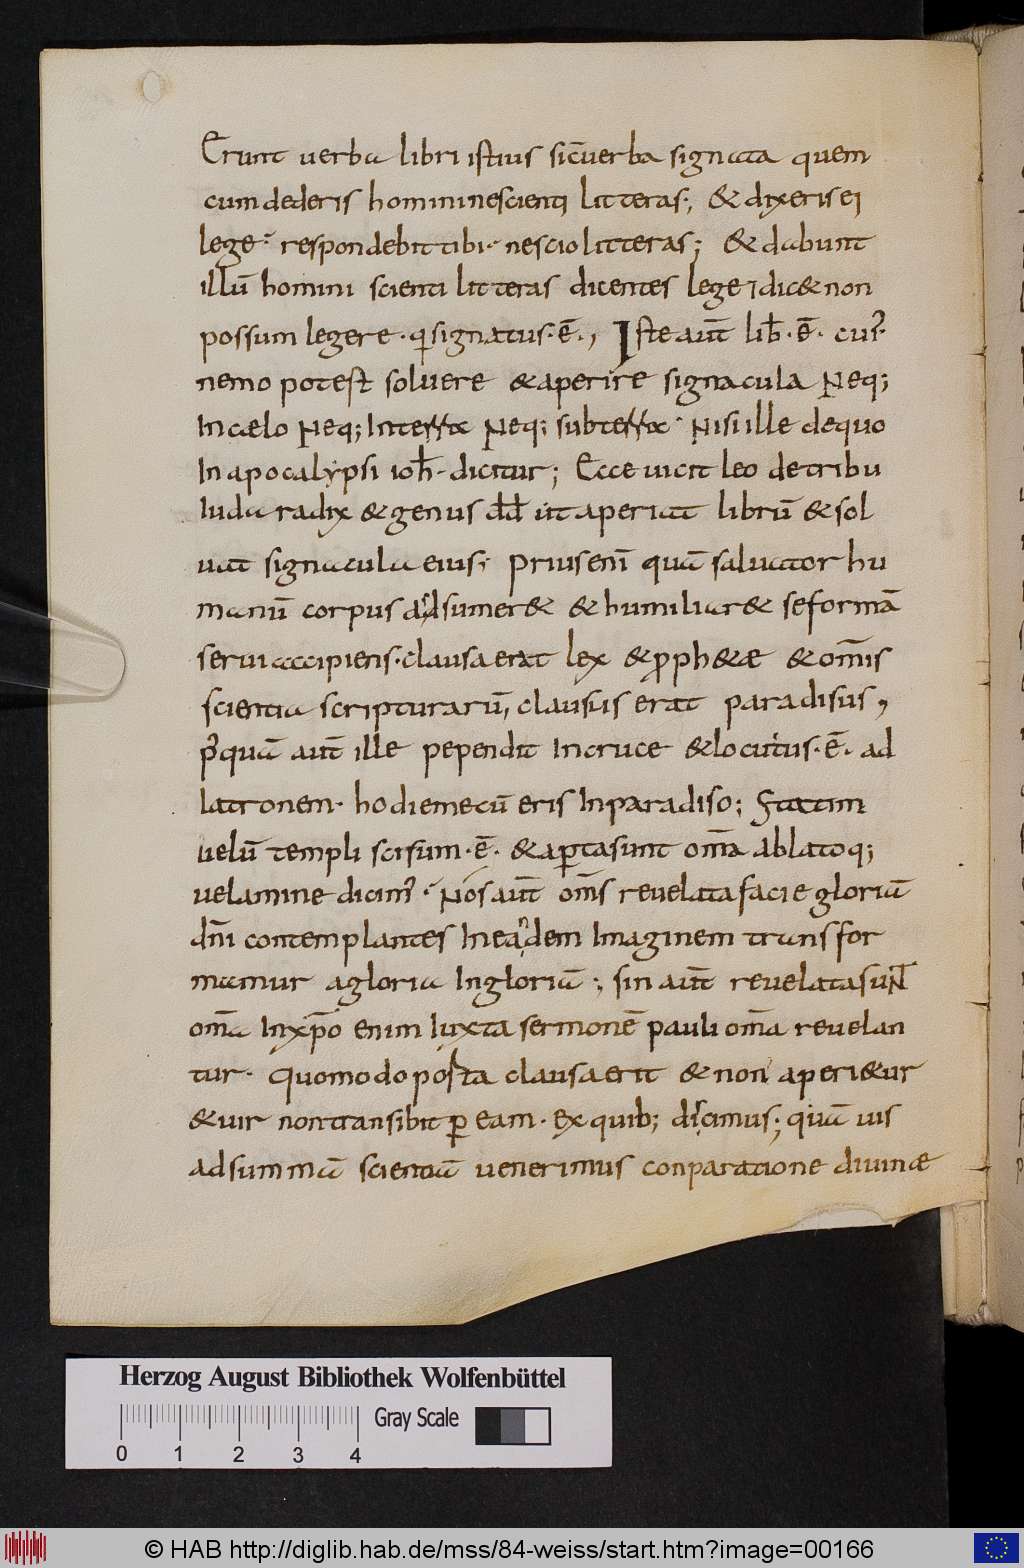 Erunt uerba libri istius sic̄ uerba signata quem
cum dederis homini nescienti litteras; & dixeris ei
lege· respondebit tibi· nescio litteras; & dabunt
illū homini scienti litteras dicentes lege & dic& non
possum legere· q̄ signatus·ē·, Iste aut̄ lib̄·ē· cuiꝰ·
nemo potest soluere & aperire signacula Neq;
In caelo Neq; In terra Neq; subterra· Nisi ille de quo
In apocalypsi ioh̄· dicitur; Ecce uicit leo de tribu
Iuda radix & genus dd̄ ut aperiat librū & sol
uat signacula eius; Prius enī quā saluator hu
manū corpus adsumer& & humiliar& se formā
serui accipiens· clausa erat lex & proph&ae & om̄is
scientia scripturarū, clausus erat paradisus,
pꝰquā aut̄ ille pependit In cruce & locutus·ē· ad
latronem· hodie mecū eris In paradiso; Statim
uelū templi scisum·ē· & aꝑta sunt om̄a ablatoq;
uelamine dicimꝰ· Nos aut̄ om̄s reuelata facie gloriā
dn̄i contemplantes In eandem Imaginem transfor
mamur a gloria In gloriā; sin aut̄ reuelata sunt
om̄a In xp̄o enim Iuxta sermonē pauli om̄a reuelan
tur· Quomodo porta clausa erit & non aperi&ur
& uir non transibit ꝑ eam· Ex quib; dicimus; quā uis
ad summā scientiā uenerimus conparatione diuinae
Herzog August Bibliothek Wolfenbüttel
Gray Scale
0 1 2 3 4
© HAB http://diglib.hab.de/mss/84-weiss/start.htm?image=00166